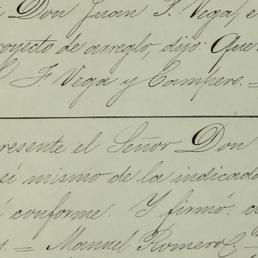 Don Juan S. Vega, e
royecto de arreglo, dijo: Que
F. Vega y Campero. =
resente el Señor Don
sí mismo de la indicada
conforme. Y firmó: a
s. = Manuel Romero C. =